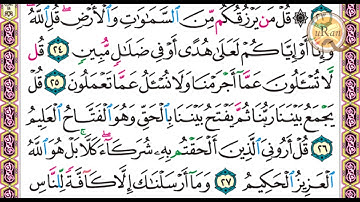 ۞ قُلۡ مَن يَرۡزُقُكُم مِّنَ ٱلسَّمَٰوَٰتِ وَٱلۡأَرۡضِۖ قُلِ ٱللَّهُۖ
وَإِنَّآ أَوۡ إِيَّاكُمۡ لَعَلَىٰ هُدًى أَوۡ فِي ضَلَٰلٖ مُّبِينٖ ٢٤ قُل
لَّا تُسۡـَٔلُونَ عَمَّآ أَجۡرَمۡنَا وَلَا نُسۡـَٔلُ عَمَّا تَعۡمَلُونَ ٢٥ قُلۡ
يَجۡمَعُ بَيۡنَنَا رَبُّنَا ثُمَّ يَفۡتَحُ بَيۡنَنَا بِٱلۡحَقِّ وَهُوَ ٱلۡفَتَّاحُ ٱلۡعَلِيمُ
٢٦ قُلۡ أَرُونِيَ ٱلَّذِينَ أَلۡحَقۡتُم بِهِۦ شُرَكَآءَۖ كَلَّاۚ بَلۡ هُوَ ٱللَّهُ
ٱلۡعَزِيزُ ٱلۡحَكِيمُ ٢٧ وَمَآ أَرۡسَلۡنَٰكَ إِلَّا كَآفَّةٗ لِّلنَّاسِ